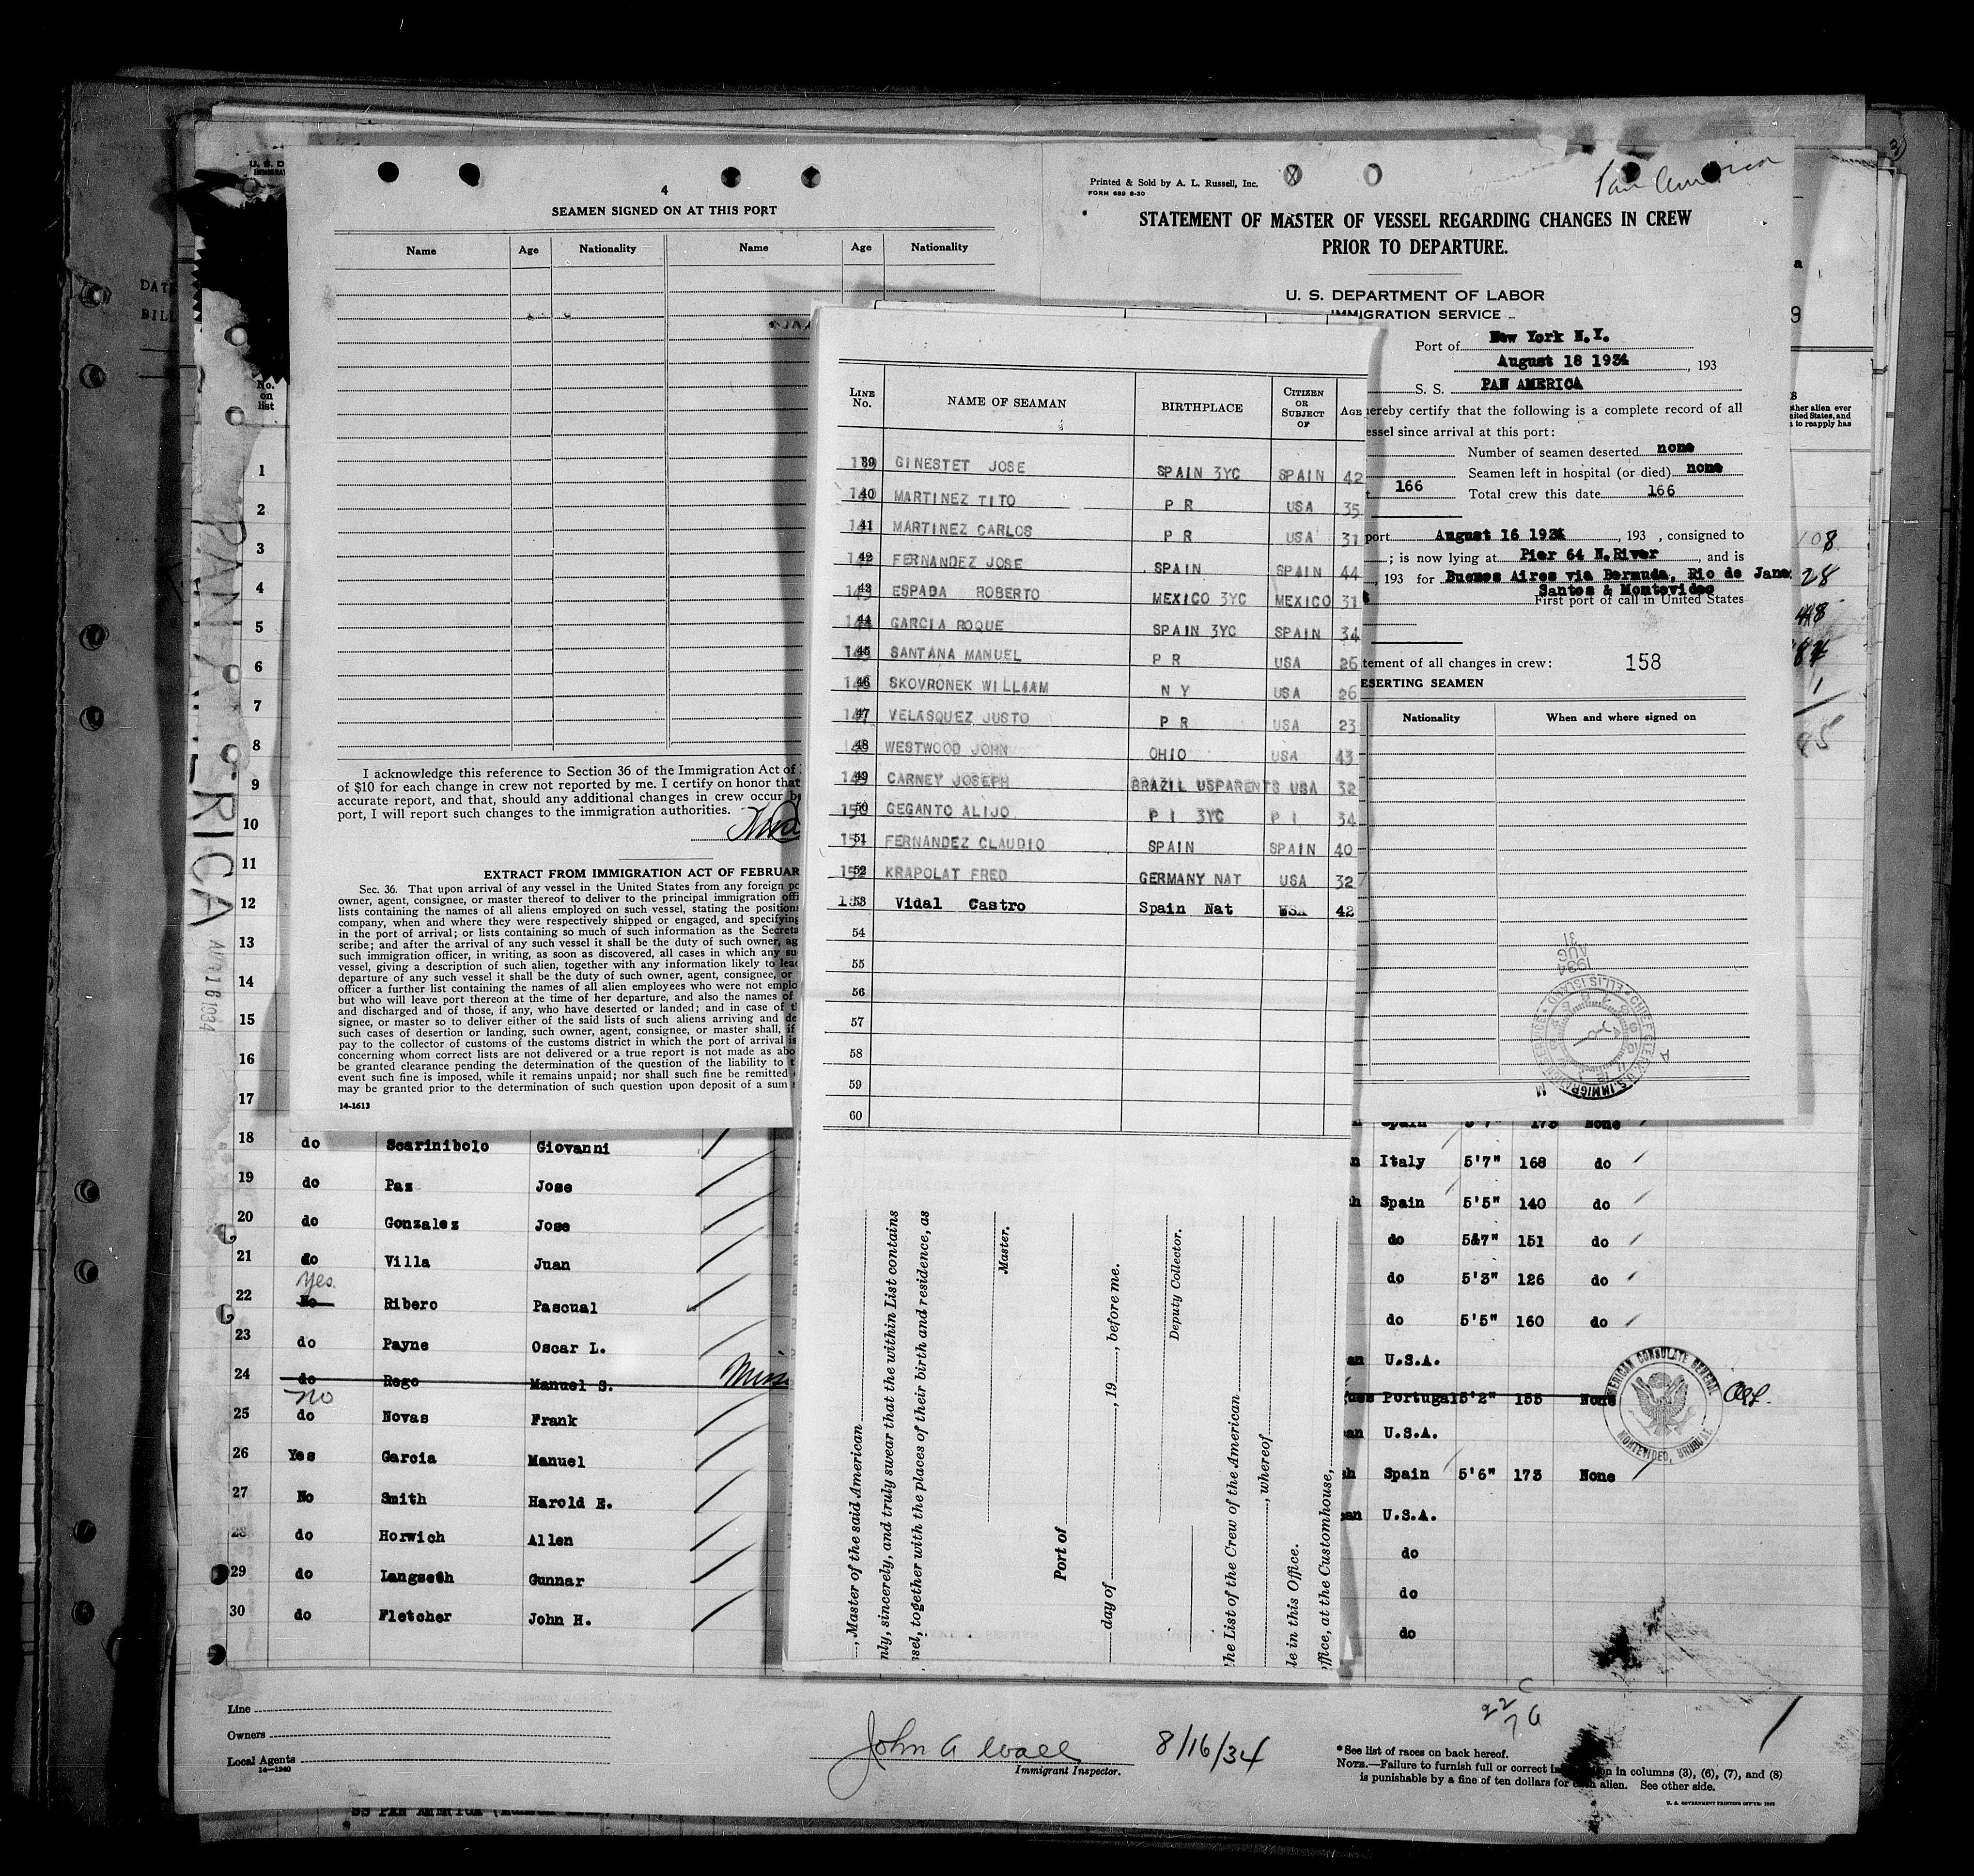 Pan America
4
SEAMEN SIGNED ON AT THIS PORT
Name Age Nationality Name Age Nationality
I acknowledge this reference to Section 36 of the Immigration Act of
of $10 for each change in crew not reported by me. I certify on honor that
accurate report, and that, should any additional changes in crew occur
port, I will report such changes to the immigration authorities.
EXTRACT FROM IMMIGRATION ACT OF FEBRUAR
Sec. 36. That upon arrival of any vessel in the United States from any foreign
owner, agent, consignee, or master thereof to deliver to the principal immigration
lists containing the names of all aliens employed on such vessel, stating the positions
company, when and where they were respectively shipped or engaged, and specifying
in the port of arrival; or lists containing so much of such information as the
scribe; and after the arrival of any such vessel it shall be the duty of such owner,
such immigration officer, in writing, as soon as discovered, all cases in which any
vessel, giving a description of such alien, together with any information likely to
departure of any such vessel it shall be the duty of such owner, agent, consignee, or
officer a further list containing the names of all alien employees who were not
but who will leave port thereon at the time of her departure, and also the names of
and discharged and of those, if any, who have deserted or landed; and in case of
signee, or master so to deliver either of the said lists of such aliens arriving and
such cases of desertion or landing, such owner, agent, consignee, or master shall, if
pay to the collector of customs of the customs district in which the port of arrival is
concerning whom correct lists are not delivered or a true report is not made as
be granted clearance pending the determination of the question of the liability to
event such fine is imposed, while it remains unpaid; nor shall such fine be remitted
may be granted prior to the determination of such question upon deposit of a sum
14-1613
Printed & Sold by A. L. Russell, Inc.
FORM 689 8-30
STATEMENT OF MASTER OF VESSEL REGARDING CHANGES IN CREW
PRIOR TO DEPARTURE.
U. S. DEPARTMENT OF LABOR
IMMIGRATION SERVICE
Port of New York N.Y.
August 18 1934, 193
S. S. PAN AMERICA
hereby certify that the following is a complete record of all
essel since arrival at this port:
Number of seamen deserted none
Seamen left in hospital (or died) none
166 Total crew this date 166
port August 16 1934, 193 , consigned to
; is now lying at Pier 64 N.River, and is
, 193 for Buenos Aires via Bermuda, Rio de Jane
Santos & Montevideo
First port of call in United States
tement of all changes in crew: 158
ESERTING SEAMEN
Nationality When and where signed on
1934
AUG
31
CHIEF CLERK U.S. IMMIGRATION SERVICE ELLIS ISLAND
LINE No. NAME OF SEAMAN BIRTHPLACE CITIZEN OR SUBJECT OF AGE
139 GINESTET JOSE SPAIN 3YC SPAIN 42
140 MARTINEZ TITO P R USA 35
141 MARTINEZ CARLOS P R USA 31
142 FERNANDEZ JOSE SPAIN SPAIN 44
143 ESPADA ROBERTO MEXICO 3YC MEXICO 31
144 GARCIA ROQUE SPAIN 3YC SPAIN 34
145 SANTANA MANUEL P R USA 26
146 SKOVRONEK WILLIAM N Y USA 26
147 VELASQUEZ JUSTO P R USA 23
148 WESTWOOD JOHN OHIO USA 43
149 CARNEY JOSEPH BRAZIL USPARENTS USA 32
150 GEGANTO ALIJO P I 3YC P I 34
151 FERNANDEZ CLAUDIO SPAIN SPAIN 40
152 KRAPOLAT FRED GERMANY NAT USA 32
153 Vidal Castro Spain Nat USA 42
54
55
56
57
58
59
60
, Master of the said American
nly, sincerely, and truly swear that the within List contains
ssel, together with the places of their birth and residence, as
Master.
Port of
day of , 19 , before me.
Deputy Collector.
he List of the Crew of the American
, whereof
le in this Office.
ffice, at the Customhouse,
PAN AMERICA
AUG 16 1934
No. on list
1
2
3
4
5
6
7
8
9
10
11
12
13
14
15
16
17
18 do Scarinibolo Giovanni
19 do Paz Jose Italy 5'7" 168 do
20 do Gonzalez Jose Spain 5'5" 140 do
21 do Villa Juan do 5&7" 151 do
22 Yes No Ribero Pascual do 5'3" 126 do
23 do Payne Oscar L. do 5'5" 160 do
24 do Rego Manuel S. U.S.A.
25 No do Novas Frank Portugal 5'2" 155 None
26 Yes Garcia Manuel U.S.A.
27 No Smith Harold E. Spain 5'6" 173 None
28 do Horwich Allen U.S.A.
29 do Langseth Gunnar do
30 do Fletcher John H. do
do
AMERICAN CONSULATE GENERAL
MONTEVIDEO, URUGUAY.
108
28
1
Line
Owners
Local Agents
14-1240
John A Wall 8/16/34
Immigrant Inspector.
*See list of races on back hereof.
NOTE.—Failure to furnish full or correct in columns (3), (6), (7), and (8)
is punishable by a fine of ten dollars for each alien. See other side.
U. S. GOVERNMENT PRINTING OFFICE
SS PAN AMERICA